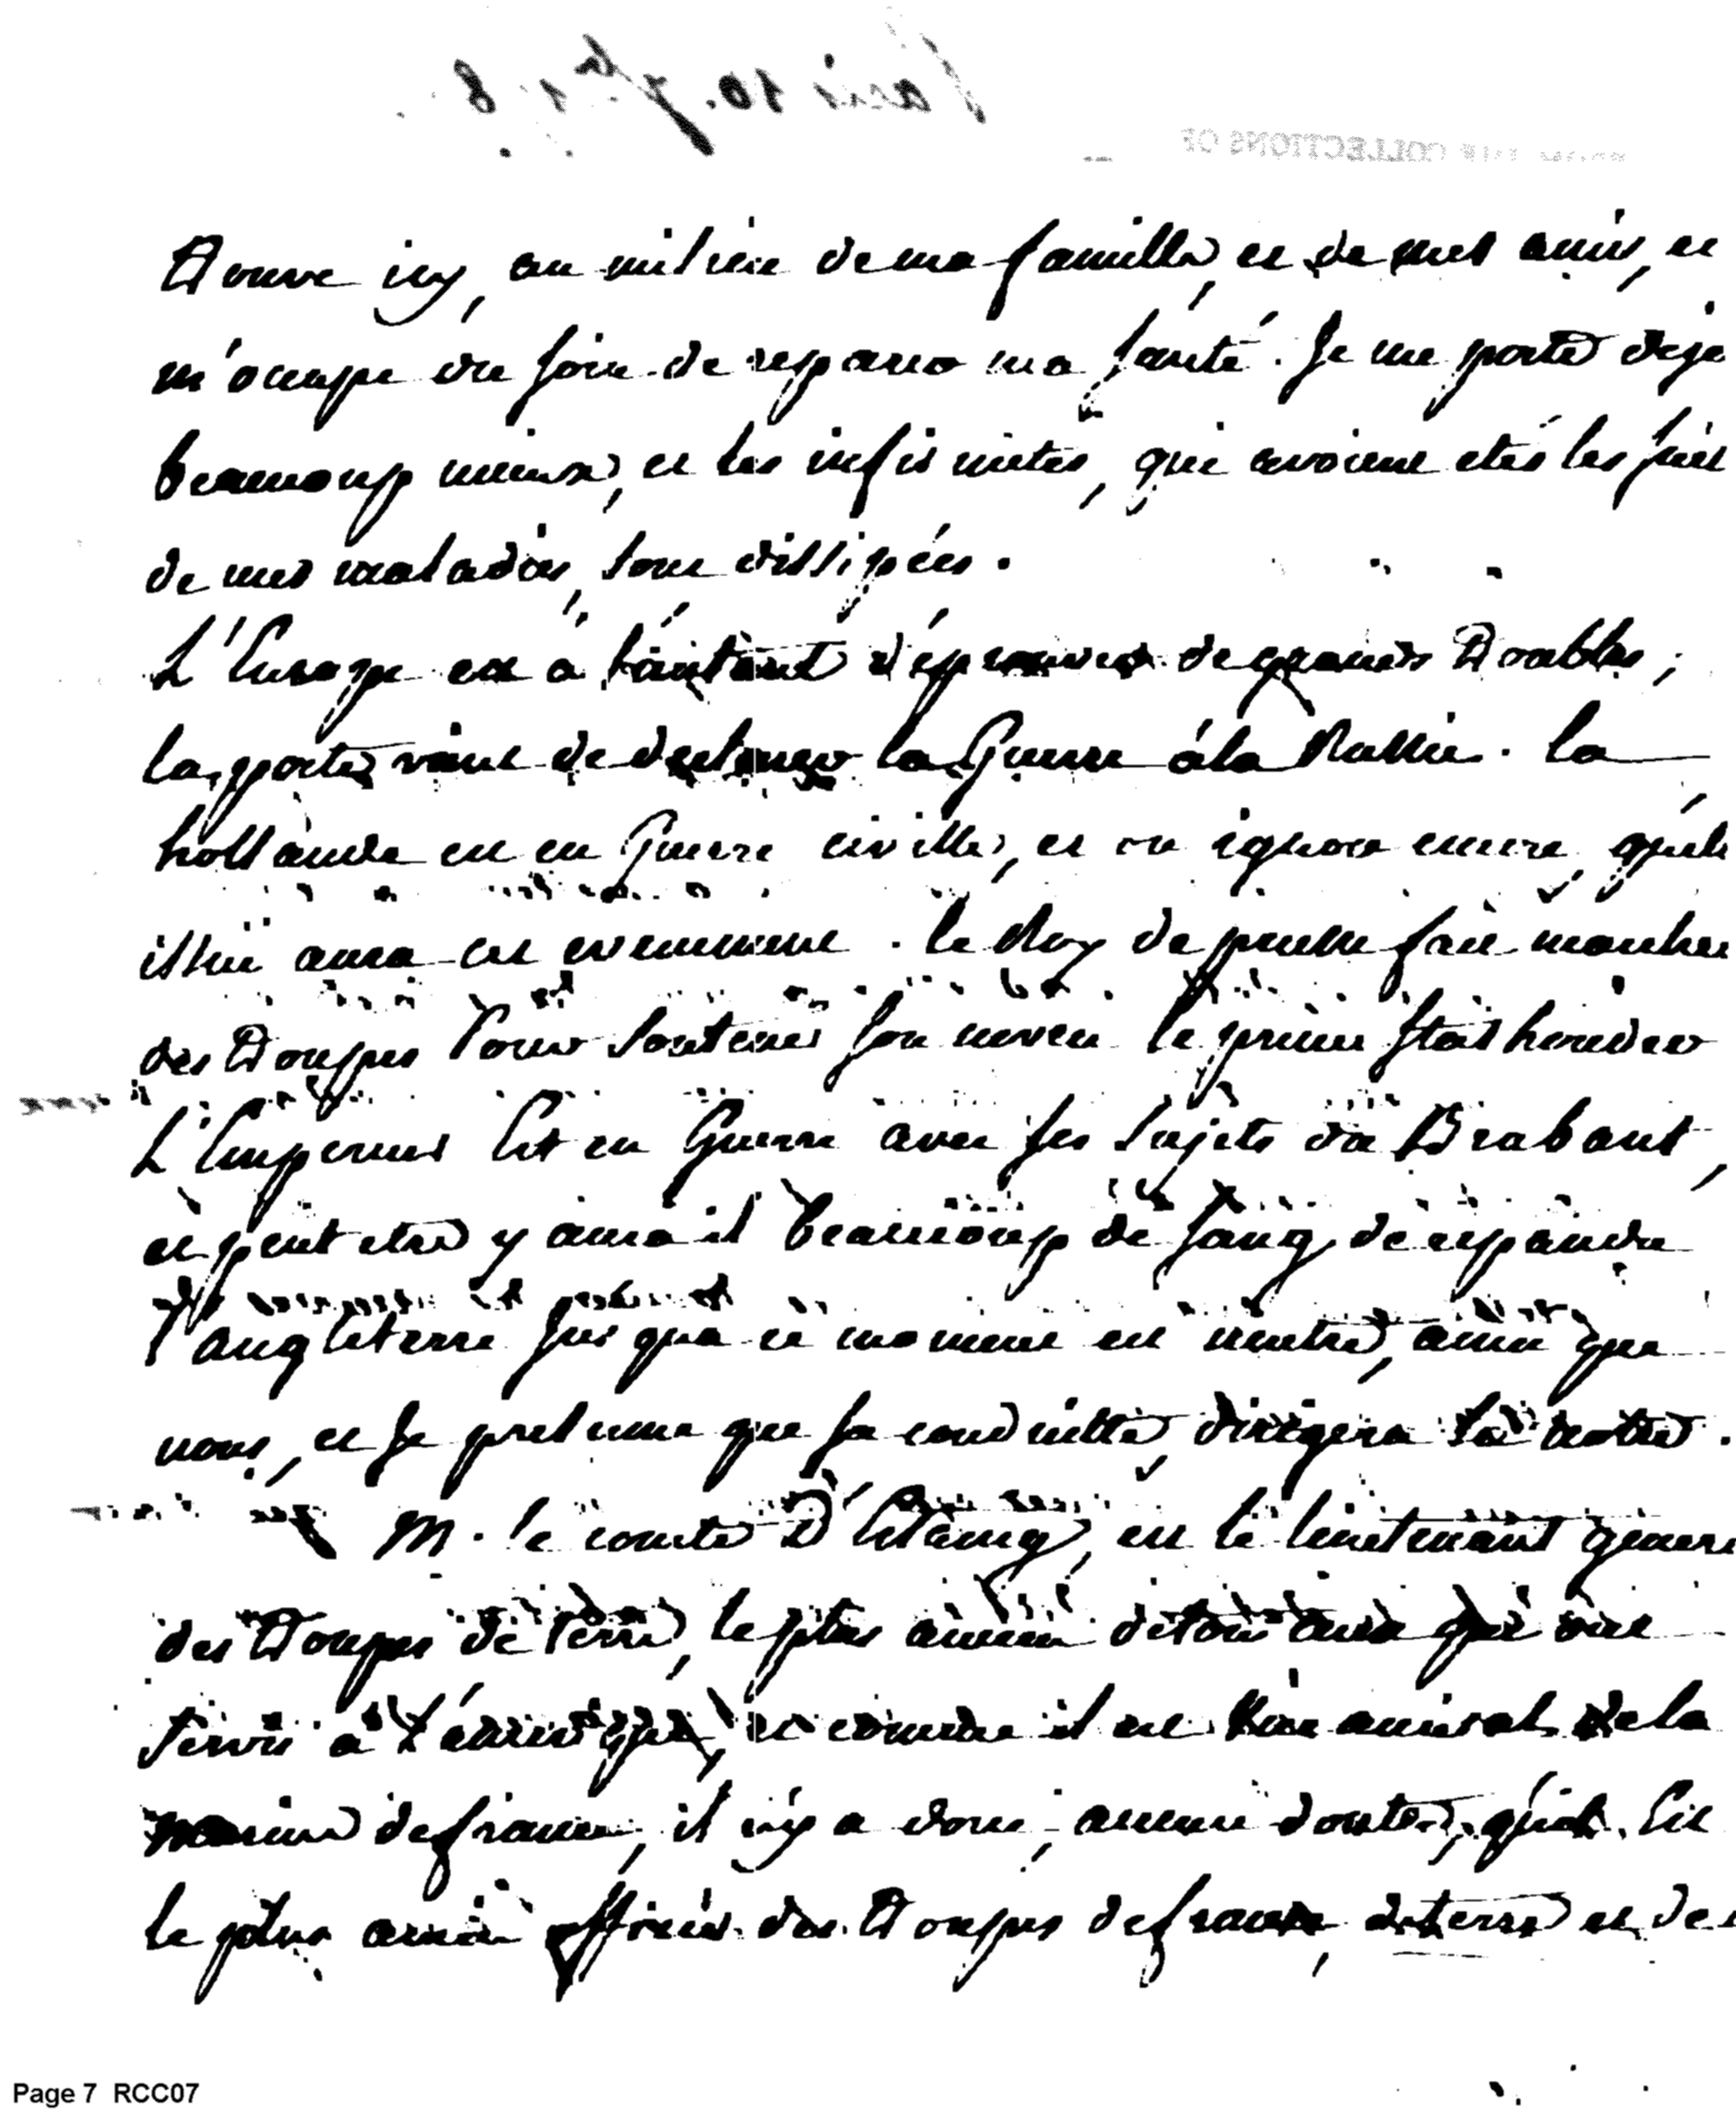 trouve icy, au milieu de ma famille, et de mes amis, et
m'occupe du soin de reparer ma santé. Je me porte deja
beaucoup mieux, et les infirmités, qui avoient etés les suit
de mes maladies, sont dissipées.
L'Europe est a l'instant d'éprouver de grands troubles;
la porte vient de declarer la Guerre á la Russie. la
hollande est en Guerre civille, et on ignore encore, quele
issue aura cet evenement. le Roy de prusse fait marcher
des troupes Pour soutenir son neveu le prince stathouder
L'Empereur est en Guerre avec ses sujets du Brabant,
et peut etre y aura il beaucoup de sang de repandu
l'angleterre jusqua ce moment est neutre, ainsi que
nous, et je presume que sa conduitte, dirigera la notre.
M. le comte D'Estaing, est le lieutenant genera
des troupes de terre, le plus ancien de tous ceux qui ont
servis a l'amerique, et comme il est vice amiral de la
marine de france, il n'y a donc, aucun doute, qu'il est
le plus ancien officier des troupes de france, de terre et de
Page 7 RCC07